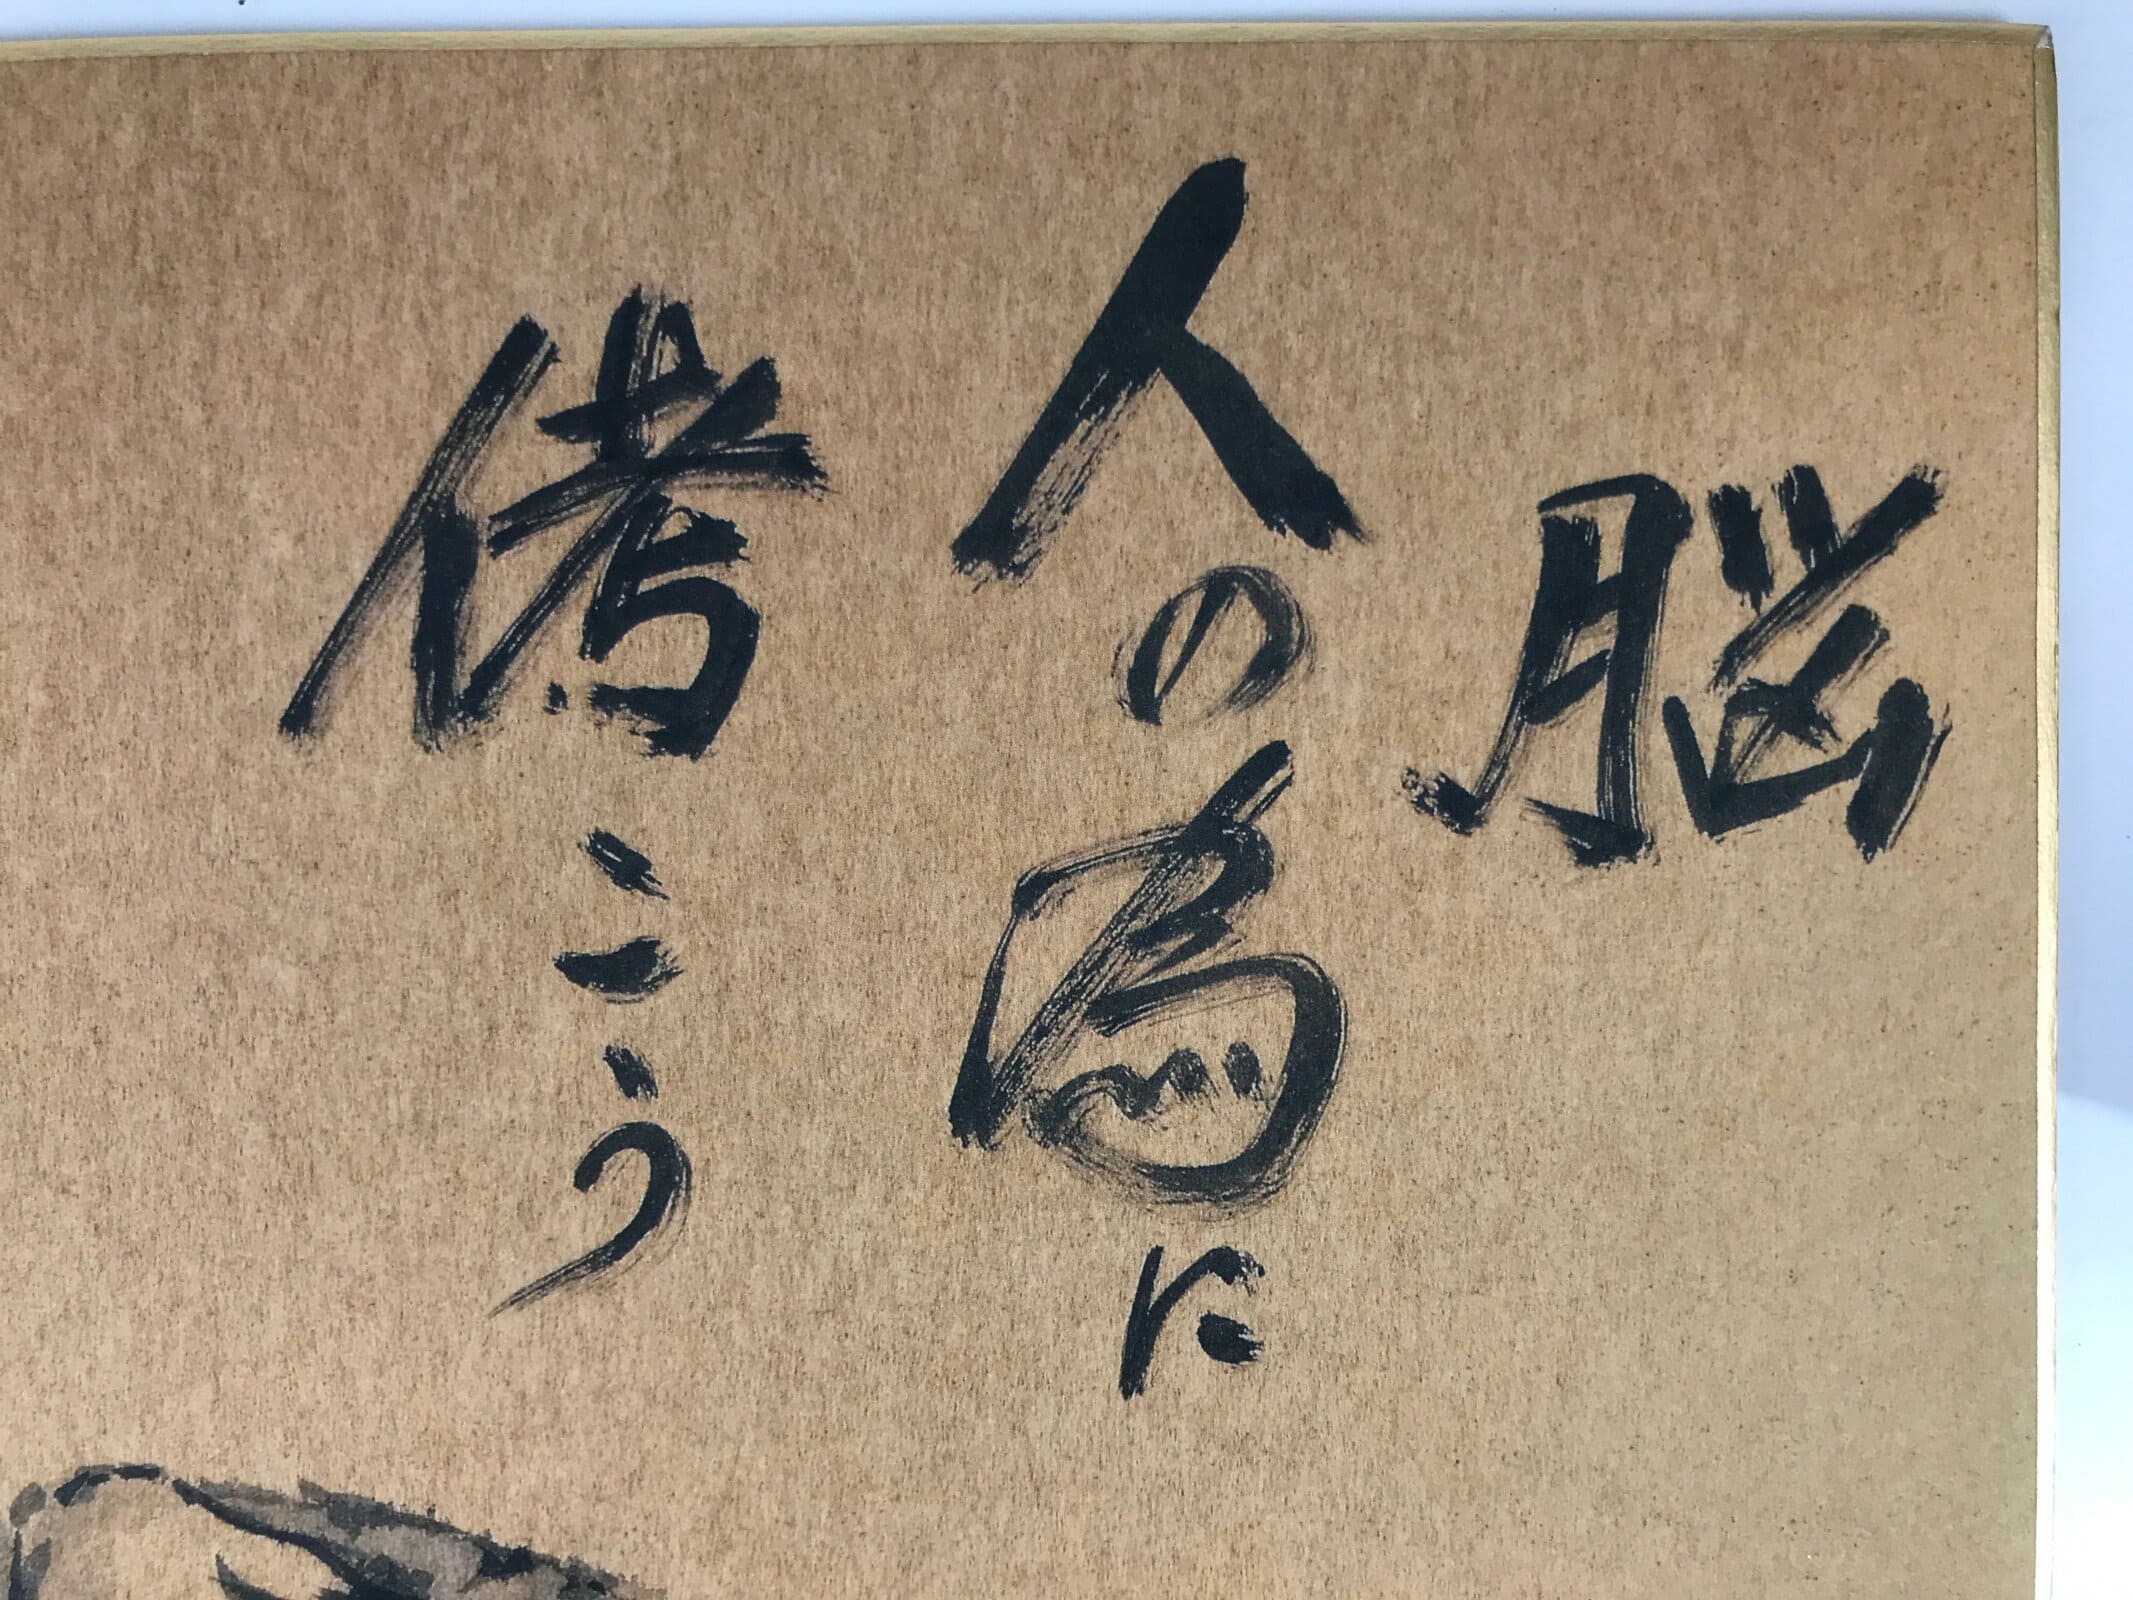 脳
人の為に
侤こう